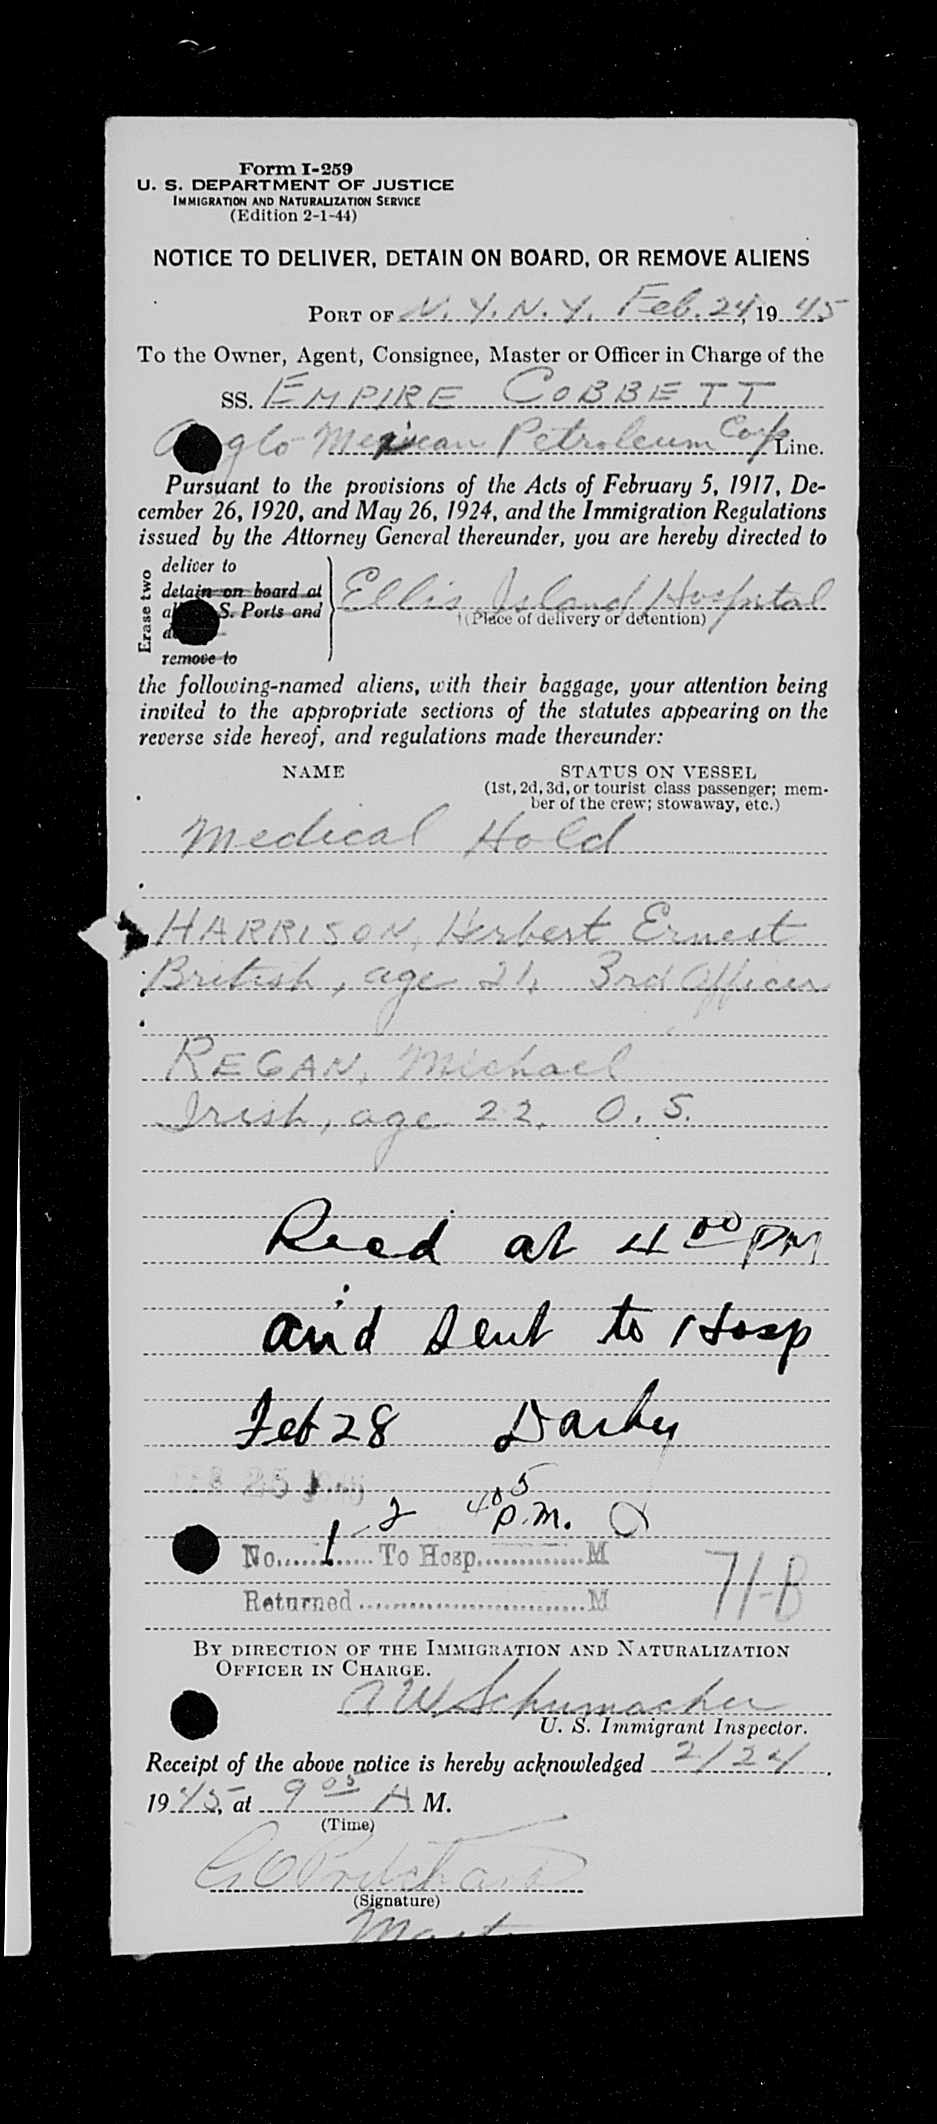 Form I-259
U. S. DEPARTMENT OF JUSTICE
IMMIGRATION AND NATURALIZATION SERVICE
(Edition 2-1-44)
NOTICE TO DELIVER, DETAIN ON BOARD, OR REMOVE ALIENS
PORT OF N.Y.N.Y. Feb. 24, 1945
To the Owner, Agent, Consignee, Master or Officer in Charge of the
SS. EMPIRE COBBETT
A glo Mexican Petroleum Corp Line.
Pursuant to the provisions of the Acts of February 5, 1917, De-
cember 26, 1920, and May 26, 1924, and the Immigration Regulations
issued by the Attorney General thereunder, you are hereby directed to
Erase two
deliver to
detain on board at
al S. Ports and
d
remove to
Ellis Island Hospital
(Place of delivery or detention)
the following-named aliens, with their baggage, your attention being
invited to the appropriate sections of the statutes appearing on the
reverse side hereof, and regulations made thereunder:
NAME STATUS ON VESSEL
(1st, 2d, 3d, or tourist class passenger; mem-
ber of the crew; stowaway, etc.)
Medical Hold
HARRISON, Herbert Ernest
British, age 21, 3rd Officer
REGAN, Michael
Irish, age 22, O.S.
Recd at 4 00 PM
and sent to Hosp
Feb 28 Darby
FEB 25 1945
2 4 05 P.M.
No. 1 To Hosp. M
71-B
Returned M
BY DIRECTION OF THE IMMIGRATION AND NATURALIZATION
OFFICER IN CHARGE.
A W Schumacher
U. S. Immigrant Inspector.
Receipt of the above notice is hereby acknowledged 2/24,
1945, at 9 05 A M.
(Time)
G O Pritchard
(Signature)